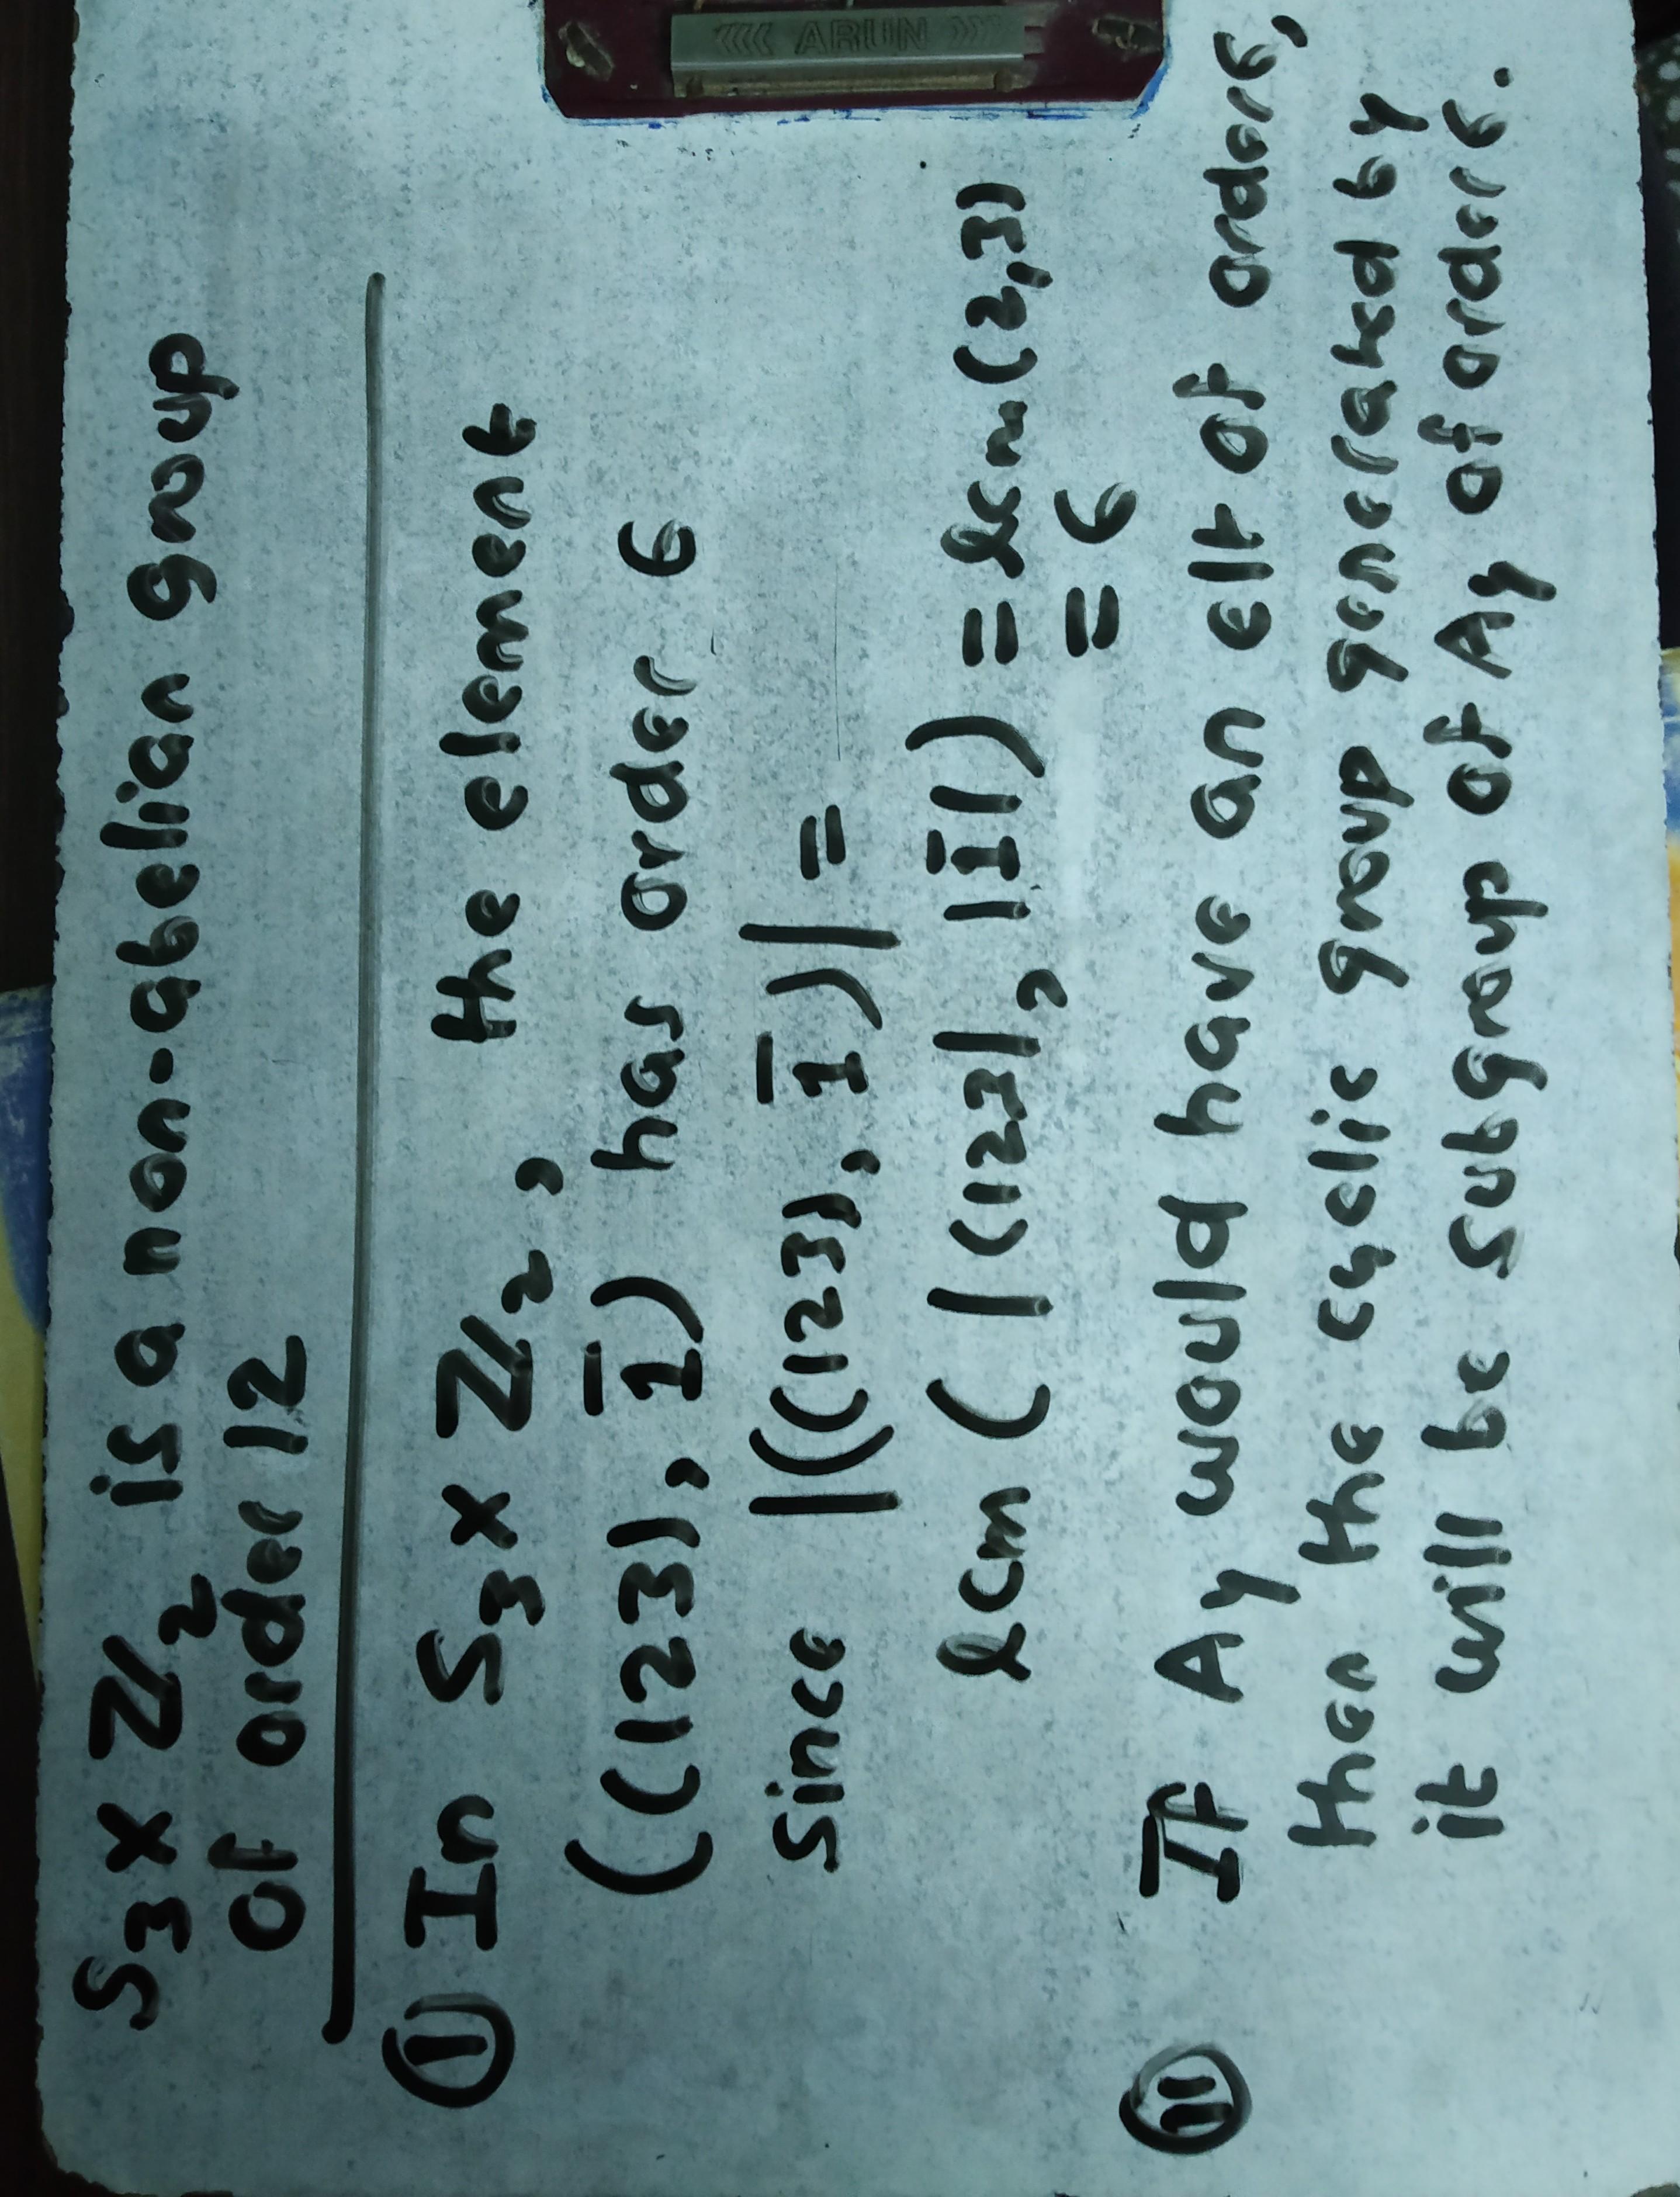 S₃ × ℤ₂ is a non-abelian group
of order 12
① In S₃ × ℤ₂, the element
((123), 1̅) has order 6
Since |((123), 1̅)| =
lcm (|(123)|, |1̅|) = lcm (2,3)
= 6
⑪ If A₄ would have an elt of order 6,
then the cyclic group generated by
it will be subgroup of A₄ of order 6.
<<< ARUN >>